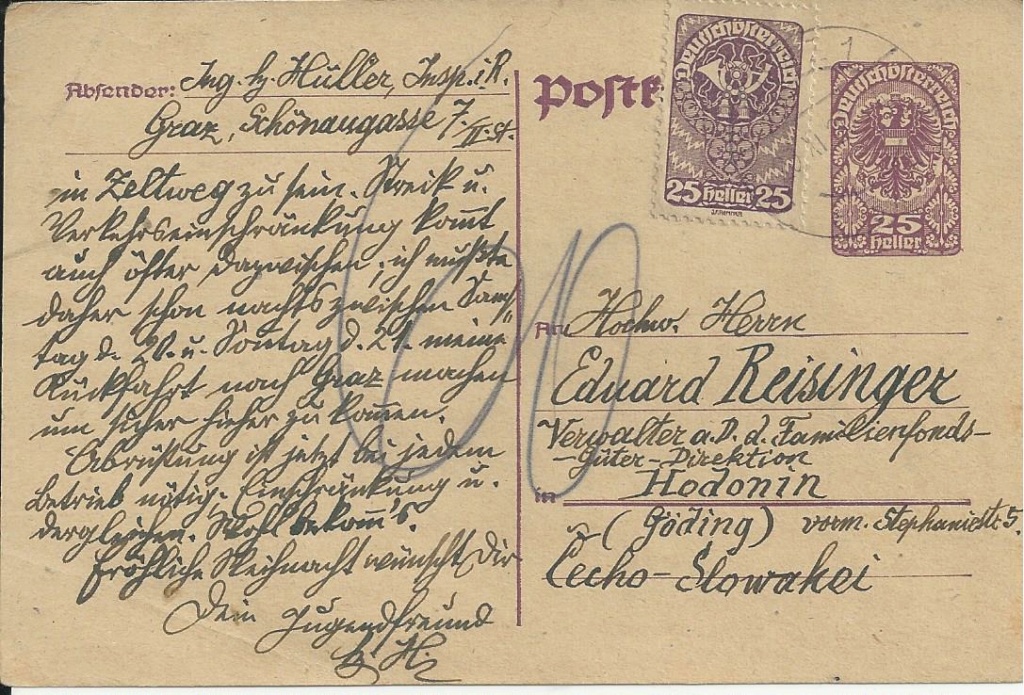 Absender: Ing. Hy. Müller, Insp. i. R.
Graz, Schönaugasse 7. II. St.
in Zeltweg zu sein. Streik u.
Verkehrseinschränkung kommt
auch öfter dazwischen, ich mußte
daher schon nachts zwischen Sams
tag d. 20. u. Sonntag d. 21. meine
Rückfahrt nach Graz machen
um sicher hieher zu kommen.
Abrüstung ist jetzt bei jedem
Betrieb nötig, Einschränkung u.
dergleichen. Wohl bekomm's.
Fröhliche Weihnacht wünscht Dir
Dein Jugendfreund
Hy. M.
Postk
Deutschösterreich
25 Heller 25
Deutschösterreich
25
Heller
1
An Hochw. Herrn
Eduard Reisinger
Verwalter a. D. d. Familienfonds-
-Güter-Direktion
in Hodonin
(Göding) vorm. Stephaniestr 5.
Čecho-Slowakei